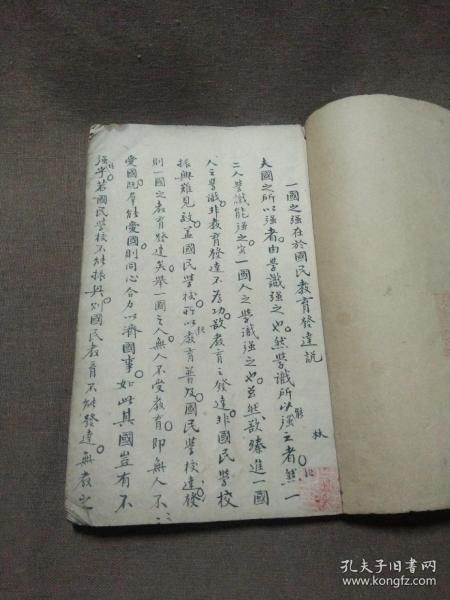 一國之强在於國民教育發達說
夫國之所以强者由學識强之也然學識所以能强之者然一
二人學識能强之 一國人之學識强之也 然欲臻進一國
人之學識非教育發達不為功欲教育之發達非國民學校
振興難見效盖國民學校所以教育普及國民學校達發
則一國之教育發達矣舉一國之人無人不受教育即無人不
愛國既羣能愛國則同心合力以濟國事如此其國豈有不
强乎若國民學校不能振興則國民教育不能發達無教之
孔夫子旧书网
www.kongfz.com